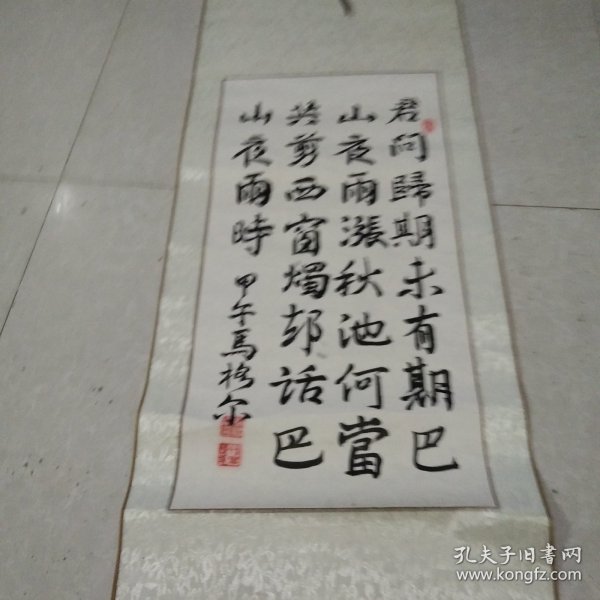 君问歸期未有期巴
山夜雨漲秋池何當
共剪西窗燭却話巴
山夜雨時
甲午馬格尔
孔夫子旧书网
www.kongfz.com